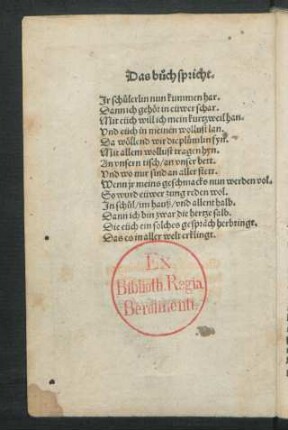 Das bůch spricht.
Ir schůlerlin nun kummen har.
Dann ich gehöt in eüwer schar.
Mit eüch will ich mein kurtzweil han.
Vnd eüch in meinen wollust lan.
Da wöllend wir die plůmlin
Mit allem wollust tragen hyn.
An vnsern tisch/an vnser bett.
Vnd wo nur sind an aller stett.
Wenn jr meins geschmacks nun werden vol.
So würd eüwer zung reden wol.
In schůl/im hauß/vnd allent halb.
Dann ich bin zwar die hertze salb.
Die eüch ein solches gespräch herbringt.
Das es in aller welt erklingt.
Ex
Biblioth. Regia
Berolinenfi.